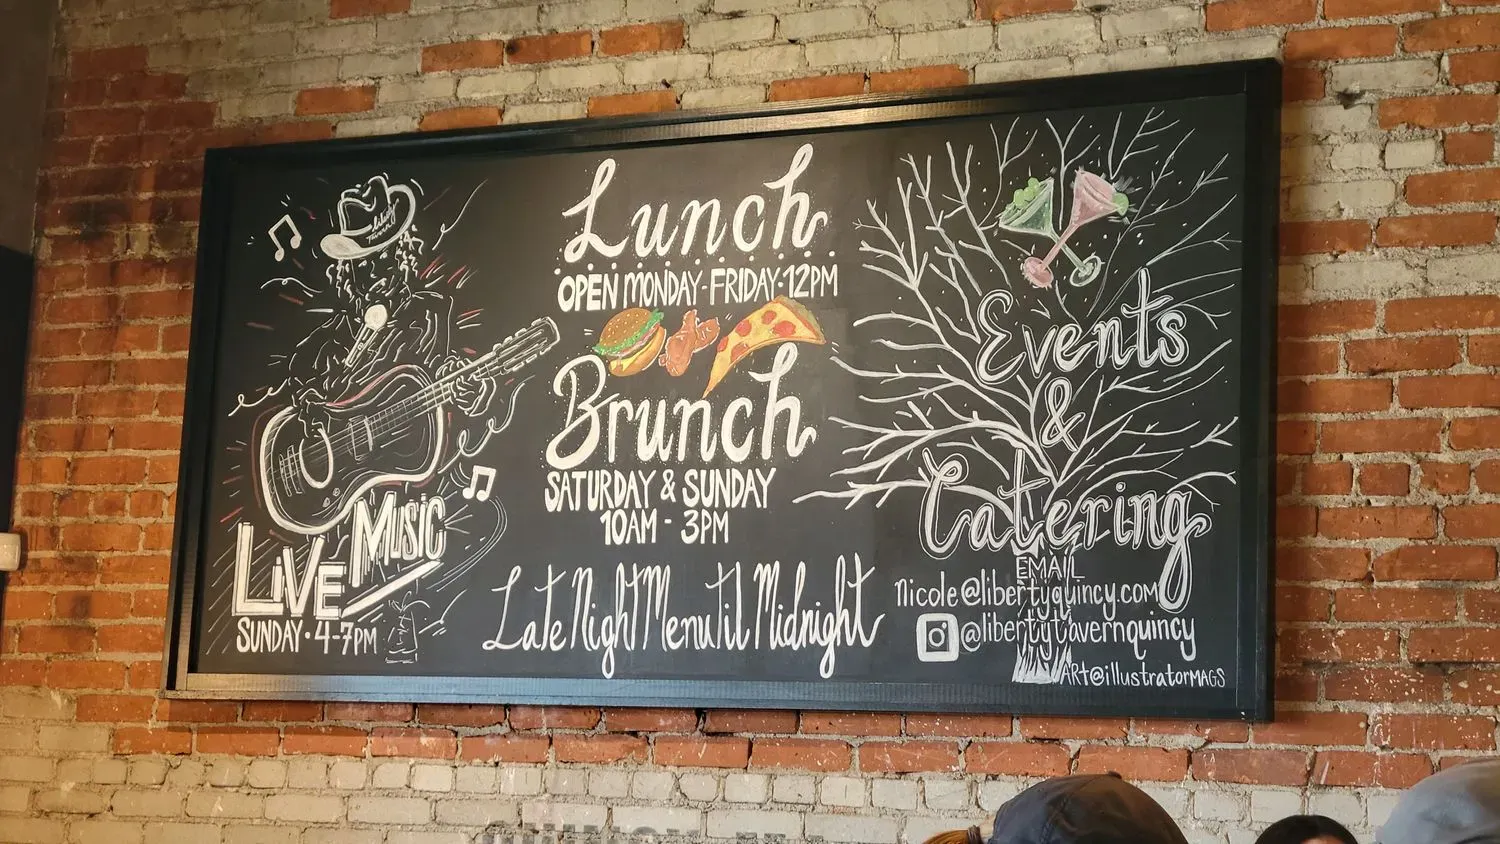 Liberty Tavern
LIVE MUSIC
SUNDAY · 4-7PM
Lunch
OPEN MONDAY-FRIDAY·12PM
Brunch
SATURDAY & SUNDAY
10AM - 3PM
Late Night Menu Til Midnight
Events
&
Catering
EMAIL
Nicole@libertyquincy.com
@libertytavernquincy
ART@illustratorMAGS